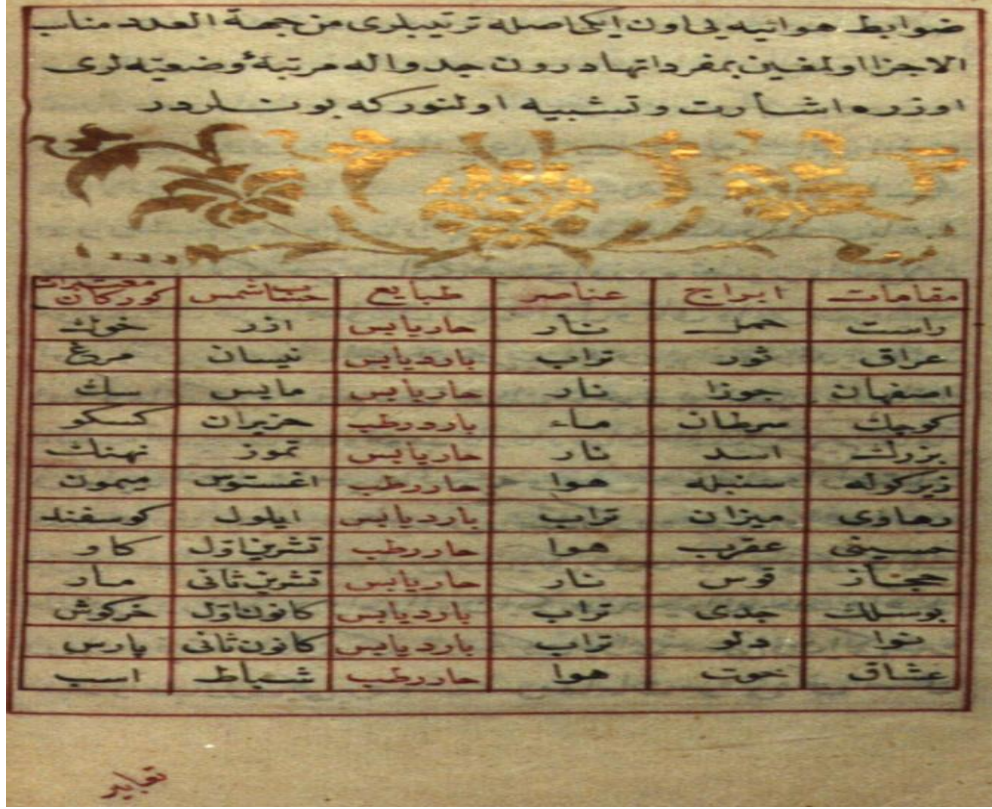 ضوابط هوائیه یی اون ایکی اصله ترتیبلری من جهة العدد مناسب
الاجزا اولمغین بمفرداتها درون جدواله مرتبهٔ وضعیه لری
اوزره اشأرت و تشبیه اولنور که بونلردر
مقامات ابراج عناصر طبایع حساب شمس کورکان
راست حمل نار حار یابس اذر خوك
عراق ثور تراب بارد یابس نیسان مرغ
اصفهان جوزا نار حار یابس مایس سك
کوچك سرطان ماء بارد رطب حزیران کسکو
بزرك اسد نار حار یابس تموز نهنك
زیرکوله سنبله هوا حار رطب اغستوس میمون
رهاوی میزان تراب بارد یابس ایلول کوسفند
حسینی عقرب هوا حار رطب تشرین اول کاو
حجاز قوس نار حار یابس تشرین ثانی مار
بوسلك جدی تراب بارد یابس کانون اول خرکوش
نوا دلو تراب بارد یابس کانون ثانی پارس
عشاق حوت هوا حار رطب شباط اسب
تعابیر